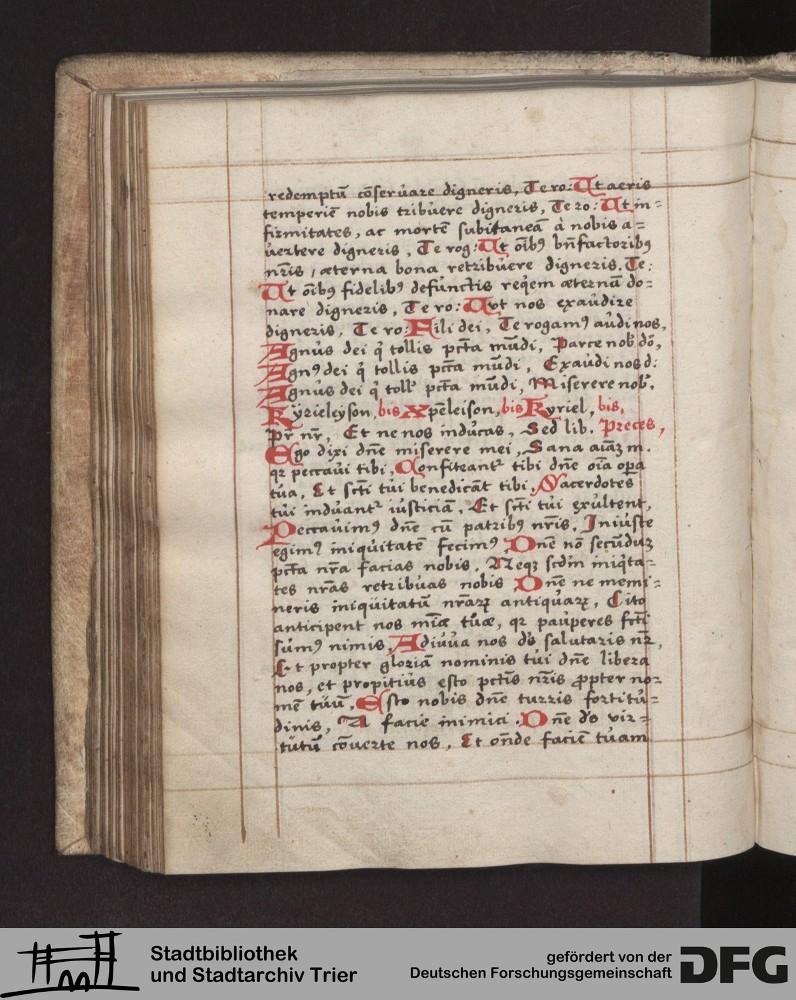 redemptū cōseruare digneris, Te ro: Ut aeris
temperiē nobis tribuere digneris, Te ro: Ut in=
firmitates, ac mortē subitaneā à nobis a=
uertere digneris, Te rog: Ut oībꝰ bn̄factoribꝰ
nr̄is, æterna bona retribuere digneris, Te:
Ut oībꝰ fidelibꝰ defunctis reqͥem æternā do=
nare digneris, Te ro: Uvt nos exaudire
digneris, Te ro: Fili dei, Te rogamꝰ audi nos,
Agnus dei qͥ tollis pctā mūdi, Parce nob' dō,
Agnꝰ dei qͥ tollis pctā mūdi, Exaudi nos d:
Agnus dei qͥ toll' pctā mūdi, Miserere nob',
Kyrieleyson, bis Xp̄eleison, bis Kyriel, bis,
Pr̄ nr̄, Et ne nos inducas, Sed lib. Preces,
Ego dixi dn̄e miserere mei, Sana aiāꝫ m.
qꝛ peccaui tibi, Confiteantᵣ tibi dn̄e oīa opa
tua, Et scti tui benedicāt tibi, Sacerdotes
tui induantᵣ iusticiā, Et scti tui exultent,
Peccauimꝰ dn̄e cū patribꝰ nr̄is, Iniuste
egimꝰ iniquitatē fecimꝰ, Dn̄e nō secūduꝫ
pctā nr̄a facias nobis, Neqꝫ scd̄m iniqͥta=
tes nr̄as retribuas nobis Dn̄e ne memi=
neris iniquitatū nr̄aꝝ antiquaꝝ, Cito
anticipent nos mīæ tuæ, qꝛ pauperes fcti
sumꝰ nimis, Adiuua nos dō salutaris nr̄,
Et propter gloriā nominis tui dn̄e libera
nos, et propitius esto pctīs nr̄is ꝓpter no=
mē tuū, Esto nobis dn̄e turris fortitu=
dinis, A facie inimici, Dn̄e dō vir=
tutū cōuerte nos, Et on̄de faciē tuam
Stadtbibliothek
und Stadtarchiv Trier
gefördert von der
Deutschen Forschungsgemeinschaft
DFG